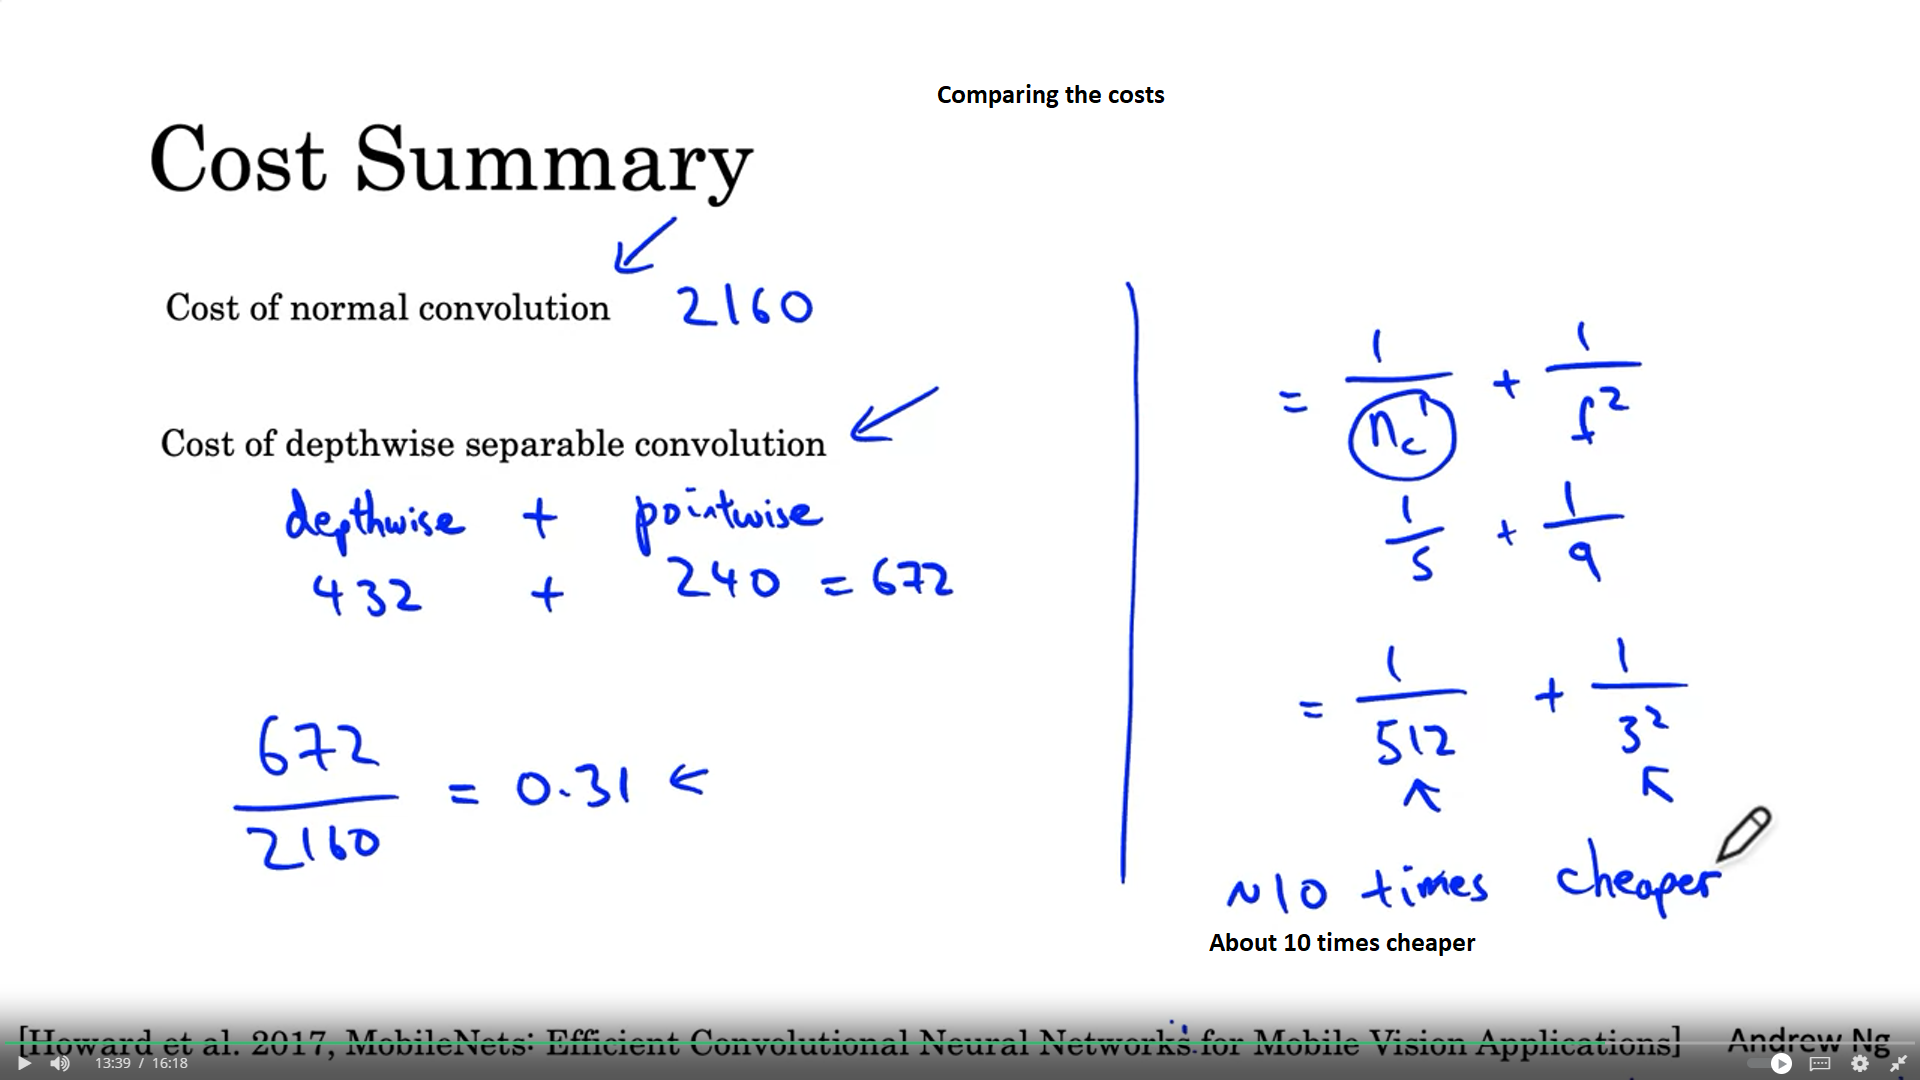 Comparing the costs
Cost Summary
Cost of normal convolution 2160
Cost of depthwise separable convolution
depthwise + pointwise
432 + 240 = 672
672
2160
= 0.31 ←
= 1/nc' + 1/f²
1/5 + 1/9
= 1/512 + 1/3²
~10 times cheaper
About 10 times cheaper
[Howard et al. 2017, MobileNets: Efficient Convolutional Neural Networks for Mobile Vision Applications] Andrew Ng
13:39 / 16:18